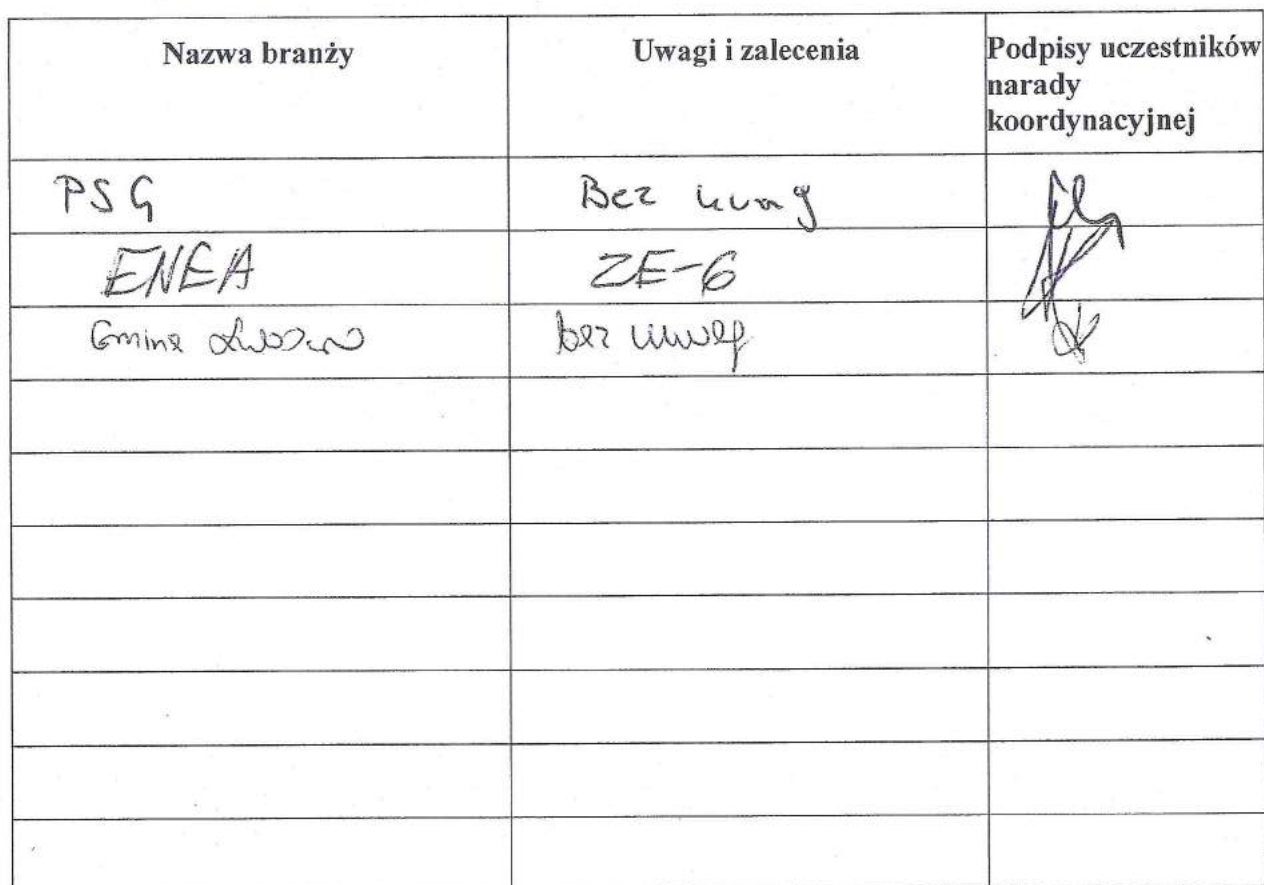 Nazwa branży
Uwagi i zalecenia
Podpisy uczestników
narady
koordynacyjnej
PSG
Bez uwag
ENEA
ZE-6
Gmina
bez uwag